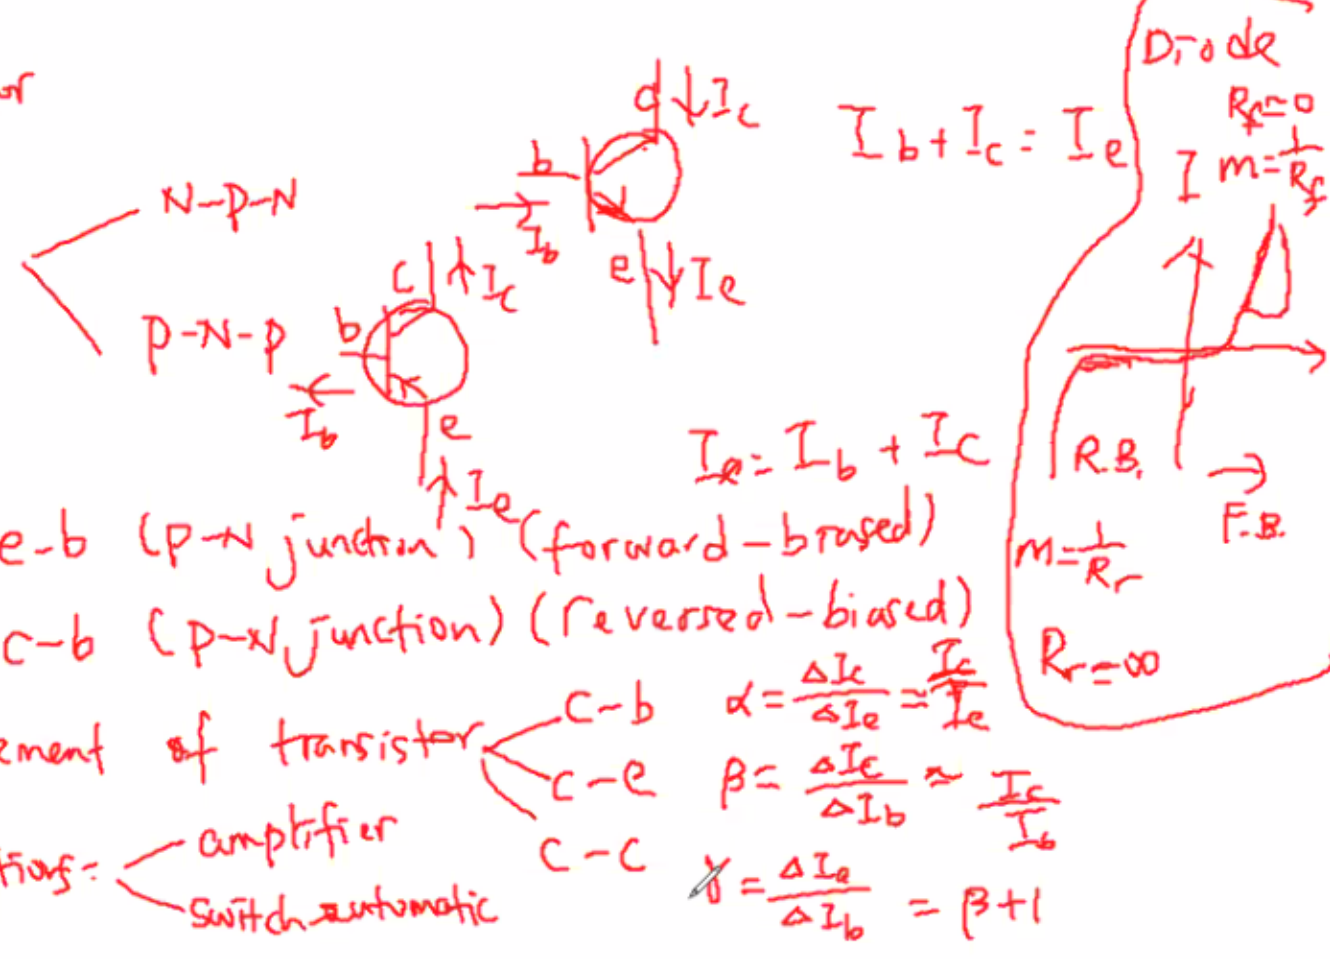 or
N-P-N
P-N-P
c ↓ Ic
b
→ Ib
e ↓ Ie
Ib + Ic = Ie
c ↑ Ic
b
← Ib
e
↑ Ie
Ie = Ib + Ic
e-b (P-N junction) (forward-biased)
c-b (P-N junction) (reversed-biased)
ement of transistor
c-b
c-e
c-c
α = ΔIc/ΔIe ≈ Ic/Ie
β = ΔIc/ΔIb ≈ Ic/Ib
γ = ΔIe/ΔIb = β+1
tions:
amplifier
switch automatic
Diode
Rf=0
I
m=1/Rf
R.B.
→
F.B.
m=1/Rr
Rr=∞